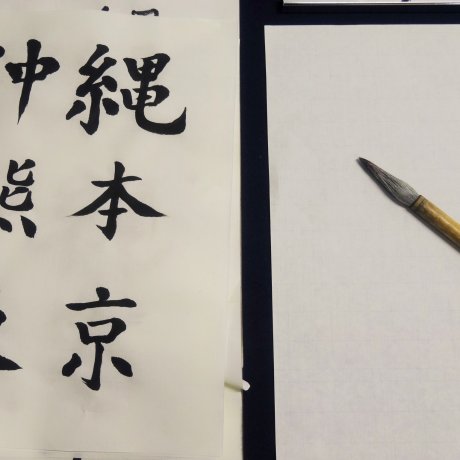 沖縄
熊本
京